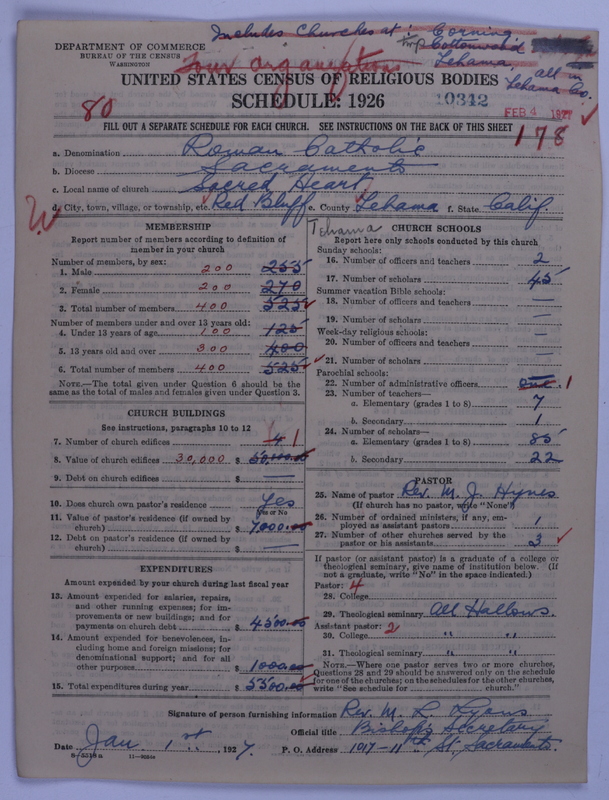 Includes Churches at: Corning
Cottonwood
Tehama, all in
Tehama Co.
Four organizations
DEPARTMENT OF COMMERCE
BUREAU OF THE CENSUS
WASHINGTON
UNITED STATES CENSUS OF RELIGIOUS BODIES
SCHEDULE: 1926
80
10342
FEB 4 1927
178
FILL OUT A SEPARATE SCHEDULE FOR EACH CHURCH. SEE INSTRUCTIONS ON THE BACK OF THIS SHEET
a. Denomination Roman Catholic
b. Diocese Sacramento
c. Local name of church Sacred Heart
d. City, town, village, or township, etc. Red Bluff e. County Tehama f. State Calif
Tehama
MEMBERSHIP
Report number of members according to definition of
member in your church
Number of members, by sex:
1. Male 200 255
2. Female 200 270
3. Total number of members 400 525
Number of members under and over 13 years old:
4. Under 13 years of age 100 125
5. 13 years old and over 300 400
6. Total number of members 400 525
NOTE.—The total given under Question 6 should be the
same as the total of males and females given under Question 3.
CHURCH BUILDINGS
See instructions, paragraphs 10 to 12
7. Number of church edifices 4 1
8. Value of church edifices 30,000 $ 50,000.00
9. Debt on church edifices $ —
10. Does church own pastor's residence Yes
Yes or No
11. Value of pastor's residence (if owned by
church) $ 7000.00
12. Debt on pastor's residence (if owned by
church) $ —
EXPENDITURES
Amount expended by your church during last fiscal year
13. Amount expended for salaries, repairs,
and other running expenses; for im-
provements or new buildings; and for
payments on church debt $ 4500.00
14. Amount expended for benevolences, in-
cluding home and foreign missions; for
denominational support; and for all
other purposes $ 1000.00
15. Total expenditures during year $ 5500.00
CHURCH SCHOOLS
Report here only schools conducted by this church
Sunday schools:
16. Number of officers and teachers 2
17. Number of scholars 45
Summer vacation Bible schools:
18. Number of officers and teachers —
19. Number of scholars —
Week-day religious schools:
20. Number of officers and teachers —
21. Number of scholars —
Parochial schools:
22. Number of administrative officers one 1
23. Number of teachers—
a. Elementary (grades 1 to 8) 7
b. Secondary 1
24. Number of scholars—
a. Elementary (grades 1 to 8) 85
b. Secondary 22
PASTOR
25. Name of pastor Rev. M. J. Hynes
(If church has no pastor, write "None")
26. Number of ordained ministers, if any, em-
ployed as assistant pastors 1
27. Number of other churches served by the
pastor or his assistants 3
If pastor (or assistant pastor) is a graduate of a college or
theological seminary, give name of institution below. (If
not a graduate, write "No" in the space indicated.)
Pastor: 4
28. College
29. Theological seminary All Hallows.
Assistant pastor: 2
30. College " "
31. Theological seminary " "
NOTE.—Where one pastor serves two or more churches,
Questions 28 and 29 should be answered only on the schedule
for one of the churches; on the schedules for the other churches,
write "See schedule for church."
Signature of person furnishing information Rev. M. L. Lyons
Official title Bishop's Secretary
Date Jan. 1st, 1927. P. O. Address 1017-11th St, Sacramento.
8-5518a